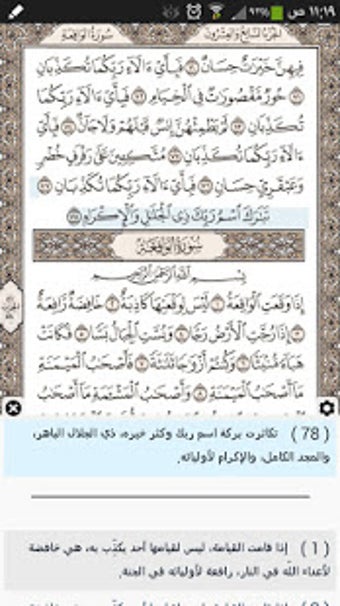 ١١:١٩ ص
الجزء السابع والعشرون سورة الواقعة
فِيهِنَّ خَيْرَٰتٌ حِسَانٌ ٧٠ فَبِأَيِّ ءَالَآءِ رَبِّكُمَا تُكَذِّبَانِ
٧١ حُورٌ مَّقْصُورَٰتٌ فِي ٱلْخِيَامِ ٧٢ فَبِأَيِّ ءَالَآءِ رَبِّكُمَا
تُكَذِّبَانِ ٧٣ لَمْ يَطْمِثْهُنَّ إِنسٌ قَبْلَهُمْ وَلَا جَآنٌّ ٧٤ فَبِأَيِّ
ءَالَآءِ رَبِّكُمَا تُكَذِّبَانِ ٧٥ مُتَّكِـِٔينَ عَلَىٰ رَفْرَفٍ خُضْرٍ
وَعَبْقَرِيٍّ حِسَانٍ ٧٦ فَبِأَيِّ ءَالَآءِ رَبِّكُمَا تُكَذِّبَانِ ٧٧
تَبَٰرَكَ ٱسْمُ رَبِّكَ ذِي ٱلْجَلَٰلِ وَٱلْإِكْرَامِ ٧٨
سورة الواقعة
بِسْمِ ٱللَّهِ ٱلرَّحْمَٰنِ ٱلرَّحِيمِ
إِذَا وَقَعَتِ ٱلْوَاقِعَةُ ١ لَيْسَ لِوَقْعَتِهَا كَاذِبَةٌ ٢ خَافِضَةٌ رَّافِعَةٌ
٣ إِذَا رُجَّتِ ٱلْأَرْضُ رَجًّا ٤ وَبُسَّتِ ٱلْجِبَالُ بَسًّا ٥ فَكَانَتْ
هَبَآءً مُّنۢبَثًّا ٦ وَكُنتُمْ أَزْوَٰجًا ثَلَٰثَةً ٧ فَأَصْحَٰبُ ٱلْمَيْمَنَةِ
مَآ أَصْحَٰبُ ٱلْمَيْمَنَةِ ٨ وَأَصْحَٰبُ ٱلْمَشْـَٔمَةِ مَآ أَصْحَٰبُ
( 78 ) تكاثرت بركة اسم ربك وكثر خيره، ذي الجلال الباهر،
والمجد الكامل، والإكرام لأوليائه.
( 1 ) إذا قامت القيامة، ليس لقيامها أحد يكذِّب به، هي خافضة
لأعداء الله في النار، رافعة لأوليائه في الجنة.